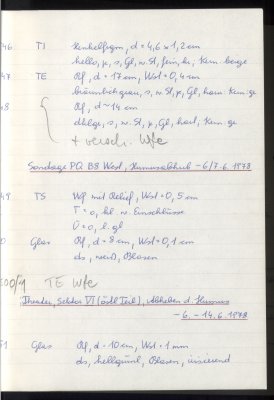 46 TI Henkelfrgm, d = 4,6 x 1,2 cm
hello, s, Gl, w. St, fein, h; Kern beige
47 TE Rf, d = 17 cm, Wst = 0,4 cm
bräunlichgrau, s, w. St, Gl, hart, Kern ge
8 Rf, d ~ 14 cm
s, w. St, Gl, hart; Kern ge
+ versch. Wfe
Sondage PQ B8 West, Humusabhub - 6/7.6.1978
49 TS Wf mit Relief, Wst = 0,5 cm
T = o, kl w. Einschlüsse
Ü = o, l. gl
0 Glas Rf, d = 8 cm, Wst = 0,1 cm
ds, weiß, Blasen
500/1 TE Wfe
Theater, Sektor VI (östl Teil), Abheben d. Humus
- 6. - 14.6.1978
51 Glas Rf, d = 10 cm, Wst = 1 mm
ds, hellgrünl, Blasen, irisierend